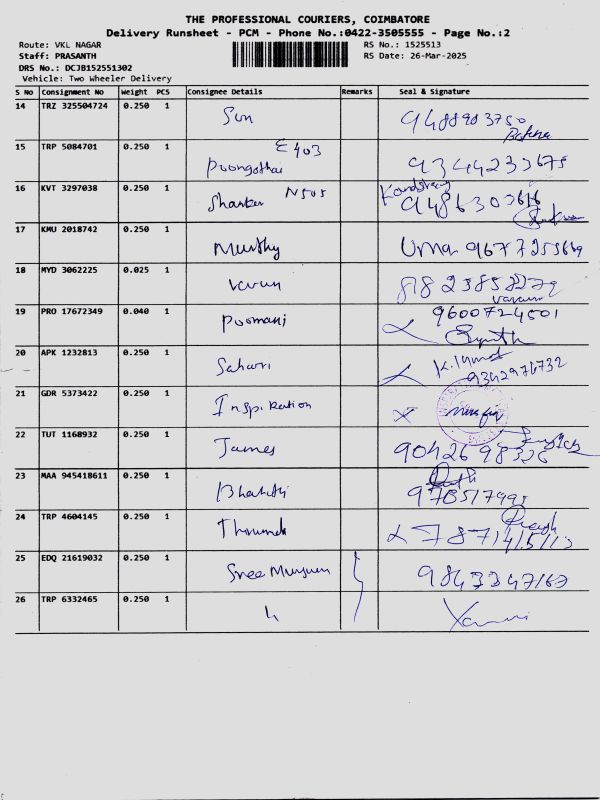 THE PROFESSIONAL COURIERS, COIMBATORE
Delivery Runsheet - PCM - Phone No.:0422-3505555 - Page No.:2
Route: VKL NAGAR RS No.: 1525513
Staff: PRASANTH RS Date: 26-Mar-2025
DRS No.: DCJB152551302
Vehicle: Two Wheeler Delivery
S No Consignment No Weight PCS Consignee Details Remarks Seal & Signature
14 TRZ 325504724 0.250 1 Sun 9488903750
15 TRP 5084701 0.250 1 E 403 Poongothai 9344233675
16 KVT 3297038 0.250 1 Shanker N505 9486303616
17 KMU 2018742 0.250 1 Murthy Uma 9677255669
18 MYD 3062225 0.025 1 Varun
19 PRO 17672349 0.040 1 Poomani 9600724501
20 APK 1232813 0.250 1 9342976732
21 GDR 5373422 0.250 1 Inspiration
22 TUT 1168932 0.250 1 James 9042698328
23 MAA 945418611 0.250 1 Bharathi
24 TRP 4604145 0.250 1
25 EDQ 21619032 0.250 1 Sree Murugan 9843347167
26 TRP 6332465 0.250 1 "